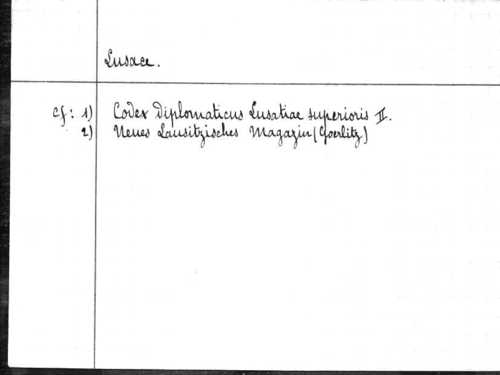 Lusace.
cf: 1) Codex Diplomaticus Lusatiae superioris II.
2) Neues Lausitzisches Magazin (Goerlitz)